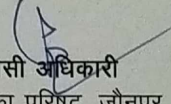 सी अधिकारी
परिषद, जौनपुर